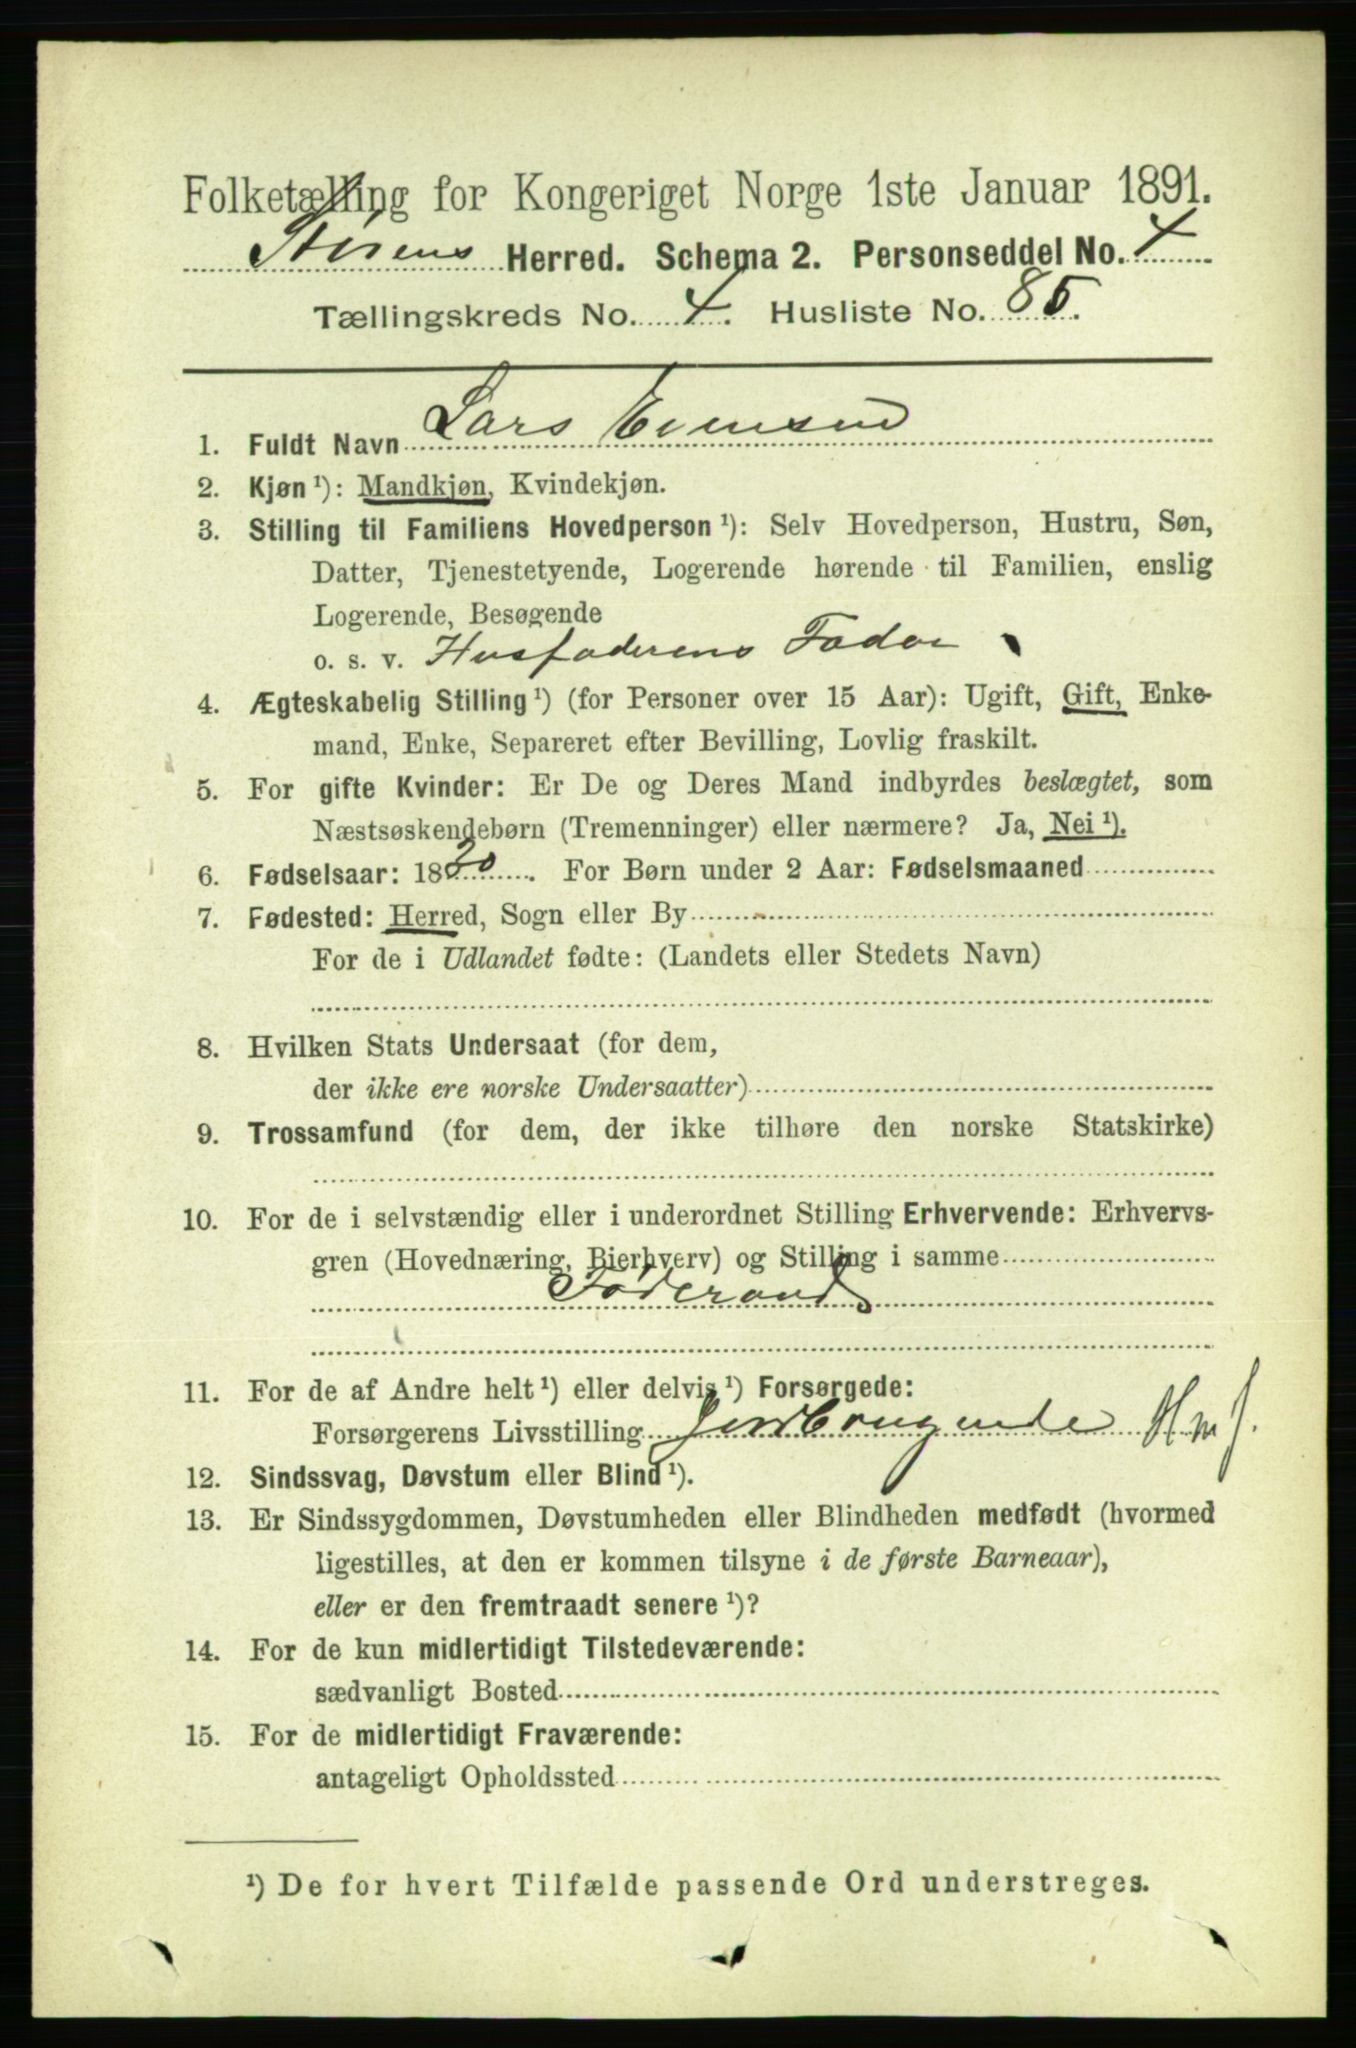 Folketælling for Kongeriget Norge 1ste Januar 1891.
Størens Herred. Schema 2. Personseddel No. 4
Tællingskreds No. 4. Husliste No. 85.
1. Fuldt Navn Lars Evensen
2. Kjøn ¹): Mandkjøn, Kvindekjøn.
3. Stilling til Familiens Hovedperson ¹): Selv Hovedperson, Hustru, Søn,
Datter, Tjenestetyende, Logerende hørende til Familien, enslig
Logerende, Besøgende
o. s. v. Husfaderens Fader
4. Ægteskabelig Stilling ¹) (for Personer over 15 Aar): Ugift, Gift, Enke-
mand, Enke, Separeret efter Bevilling, Lovlig fraskilt.
5. For gifte Kvinder: Er De og Deres Mand indbyrdes beslægtet, som
Næstsøskendebørn (Tremenninger) eller nærmere? Ja, Nei ¹).
6. Fødselsaar: 18 . For Børn under 2 Aar: Fødselsmaaned
7. Fødested: Herred, Sogn eller By
For de i Udlandet fødte: (Landets eller Stedets Navn)
8. Hvilken Stats Undersaat (for dem,
der ikke ere norske Undersaatter)
9. Trossamfund (for dem, der ikke tilhøre den norske Statskirke)
10. For de i selvstændig eller i underordnet Stilling Erhvervende: Erhvervs-
gren (Hovednæring, Bierhverv) og Stilling i samme
Føderaad
11. For de af Andre helt ¹) eller delvis ¹) Forsørgede:
Forsørgerens Livsstilling Jordbrugende
12. Sindssvag, Døvstum eller Blind ¹).
13. Er Sindssygdommen, Døvstumheden eller Blindheden medfødt (hvormed
ligestilles, at den er kommen tilsyne i de første Barneaar),
eller er den fremtraadt senere ¹)?
14. For de kun midlertidigt Tilstedeværende:
sædvanligt Bosted
15. For de midlertidigt Fraværende:
antageligt Opholdssted
¹) De for hvert Tilfælde passende Ord understreges.